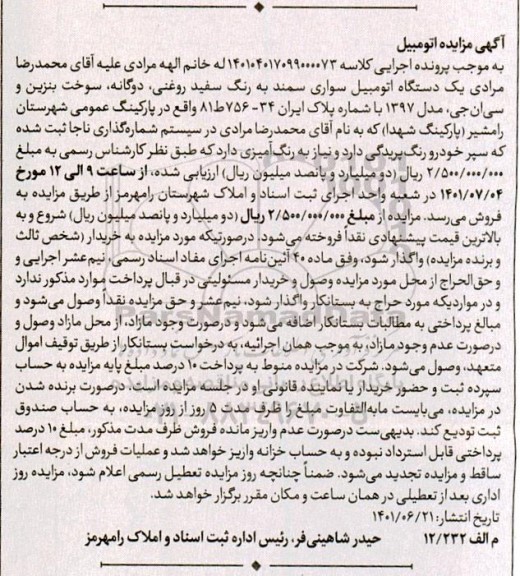 آگهی مزایده اتومبیل
به موجب پرونده اجرایی کلاسه ۱۴۰۱۰۴۰۱۷۰۹۹۰۰۰۰۷۳ له خانم الهه مرادی علیه آقای محمدرضا
مرادی یک دستگاه اتومبیل سواری سمند به رنگ سفید روغنی، دوگانه، سوخت بنزین و
سی‌ان‌جی، مدل ۱۳۹۷ با شماره پلاک ایران ۳۴- ۷۵۶ط۸۱ واقع در پارکینگ عمومی شهرستان
رامشیر (پارکینگ شهدا) که به نام آقای محمدرضا مرادی در سیستم شماره‌گذاری ناجا ثبت شده
که سپر خودرو رنگ‌پریدگی دارد و نیاز به رنگ‌آمیزی دارد که طبق نظر کارشناس رسمی به مبلغ
۲/۵۰۰/۰۰۰/۰۰۰ ریال (دو میلیارد و پانصد میلیون ریال) ارزیابی شده، از ساعت ۹ الی ۱۲ مورخ
۱۴۰۱/۰۷/۰۴ در شعبه واحد اجرای ثبت اسناد و املاک شهرستان رامهرمز از طریق مزایده به
فروش می‌رسد. مزایده از مبلغ ۲/۵۰۰/۰۰۰/۰۰۰ ریال (دو میلیارد و پانصد میلیون ریال) شروع و به
بالاترین قیمت پیشنهادی نقداً فروخته می‌شود. درصورتیکه مورد مزایده به خریدار (شخص ثالث
و برنده مزایده) واگذار شود، وفق ماده ۴۰ آئین‌نامه اجرای مفاد اسناد رسمی، نیم‌عشر اجرایی و
حق‌الحراج از محل مورد مزایده وصول و خریدار مسئولیتی در قبال پرداخت موارد مذکور ندارد
و در مواردیکه مورد حراج به بستانکار واگذار شود، نیم‌عشر و حق مزایده نقداً وصول می‌شود و
مبالغ پرداختی به مطالبات بستانکار اضافه می‌شود و درصورت وجود مازاد، از محل مازاد وصول و
درصورت عدم وجود مازاد، به موجب همان اجرائیه، به درخواست بستانکار از طریق توقیف اموال
متعهد، وصول می‌شود. شرکت در مزایده منوط به پرداخت ۱۰ درصد مبلغ پایه مزایده به حساب
سپرده ثبت و حضور خریدار یا نماینده قانونی او در جلسه مزایده است. درصورت برنده شدن
در مزایده، می‌بایست مابه‌التفاوت مبلغ را ظرف مدت ۵ روز از روز مزایده، به حساب صندوق
ثبت تودیع کند. بدیهی‌ست درصورت عدم واریز مانده فروش ظرف مدت مذکور، مبلغ ۱۰ درصد
پرداختی قابل استرداد نبوده و به حساب خزانه واریز خواهد شد و عملیات فروش از درجه اعتبار
ساقط و مزایده تجدید می‌شود. ضمناً چنانچه روز مزایده تعطیل رسمی اعلام شود، مزایده روز
اداری بعد از تعطیلی در همان ساعت و مکان مقرر برگزار خواهد شد.
تاریخ انتشار: ۱۴۰۱/۰۶/۲۱
م الف ۱۲/۲۳۲ حیدر شاهینی‌فر، رئیس اداره ثبت اسناد و املاک رامهرمز